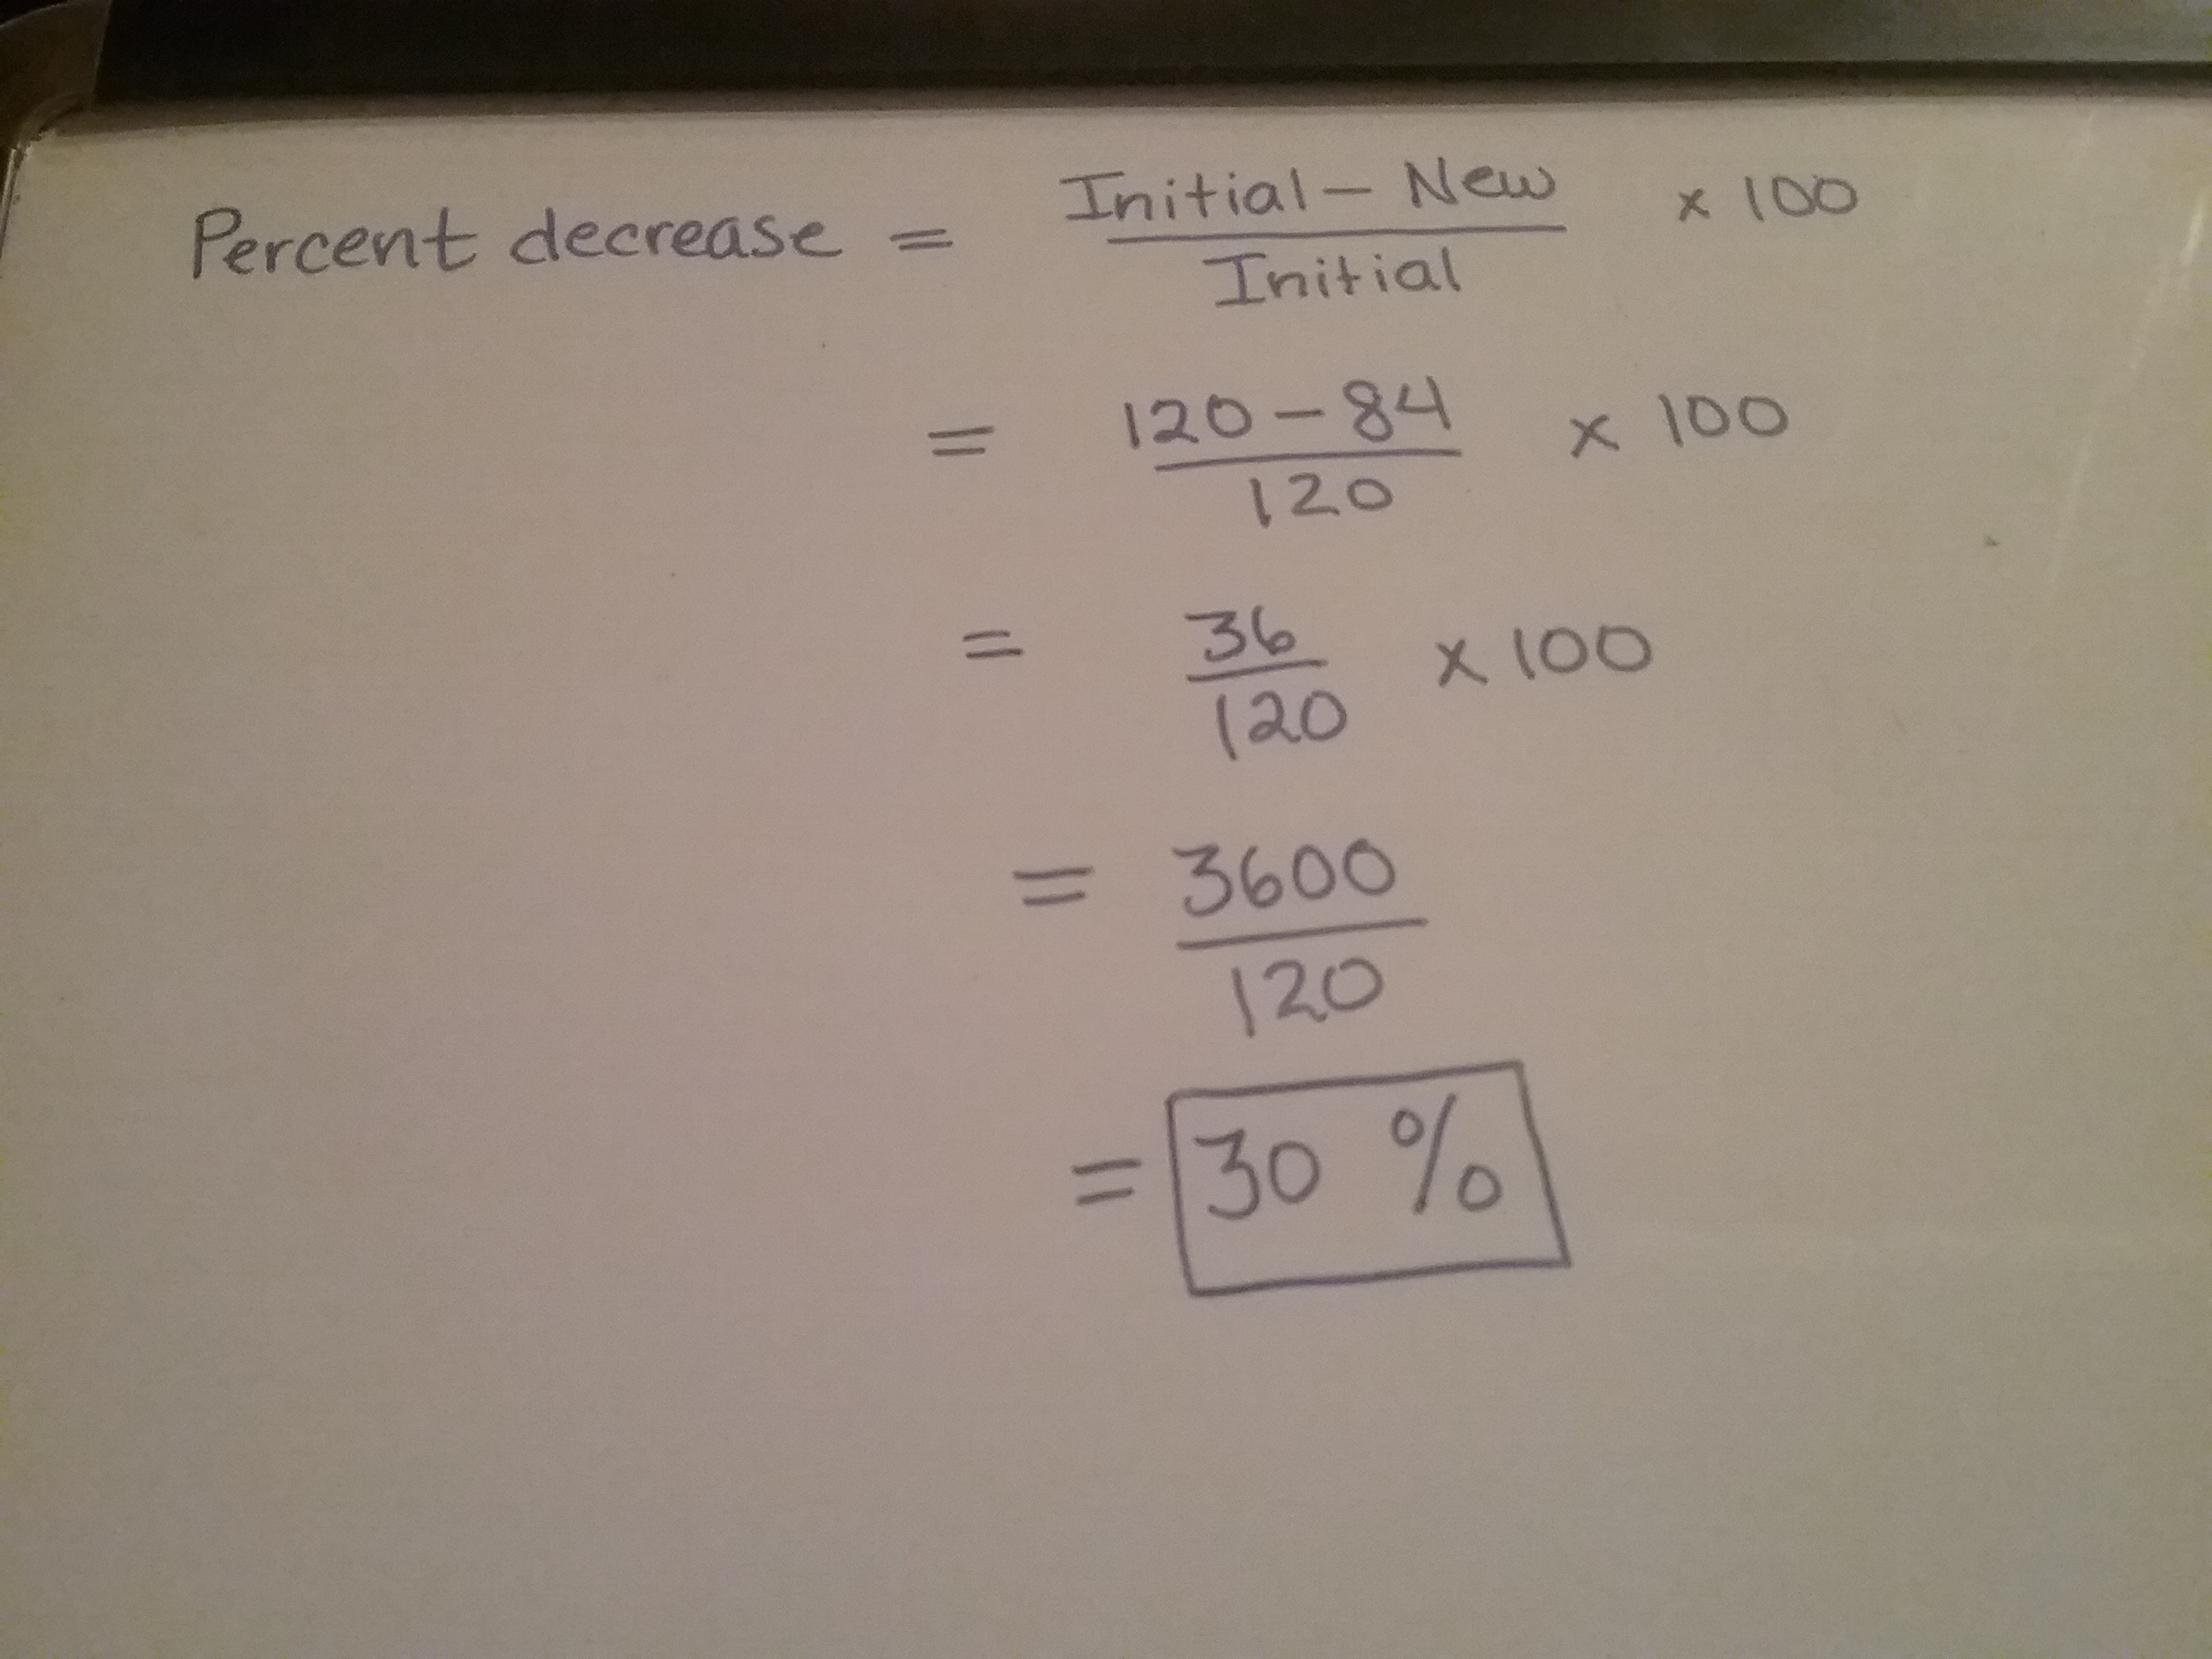 Percent decrease = Initial - New / Initial x 100
= 120 - 84 / 120 x 100
= 36 / 120 x 100
= 3600 / 120
= 30 %